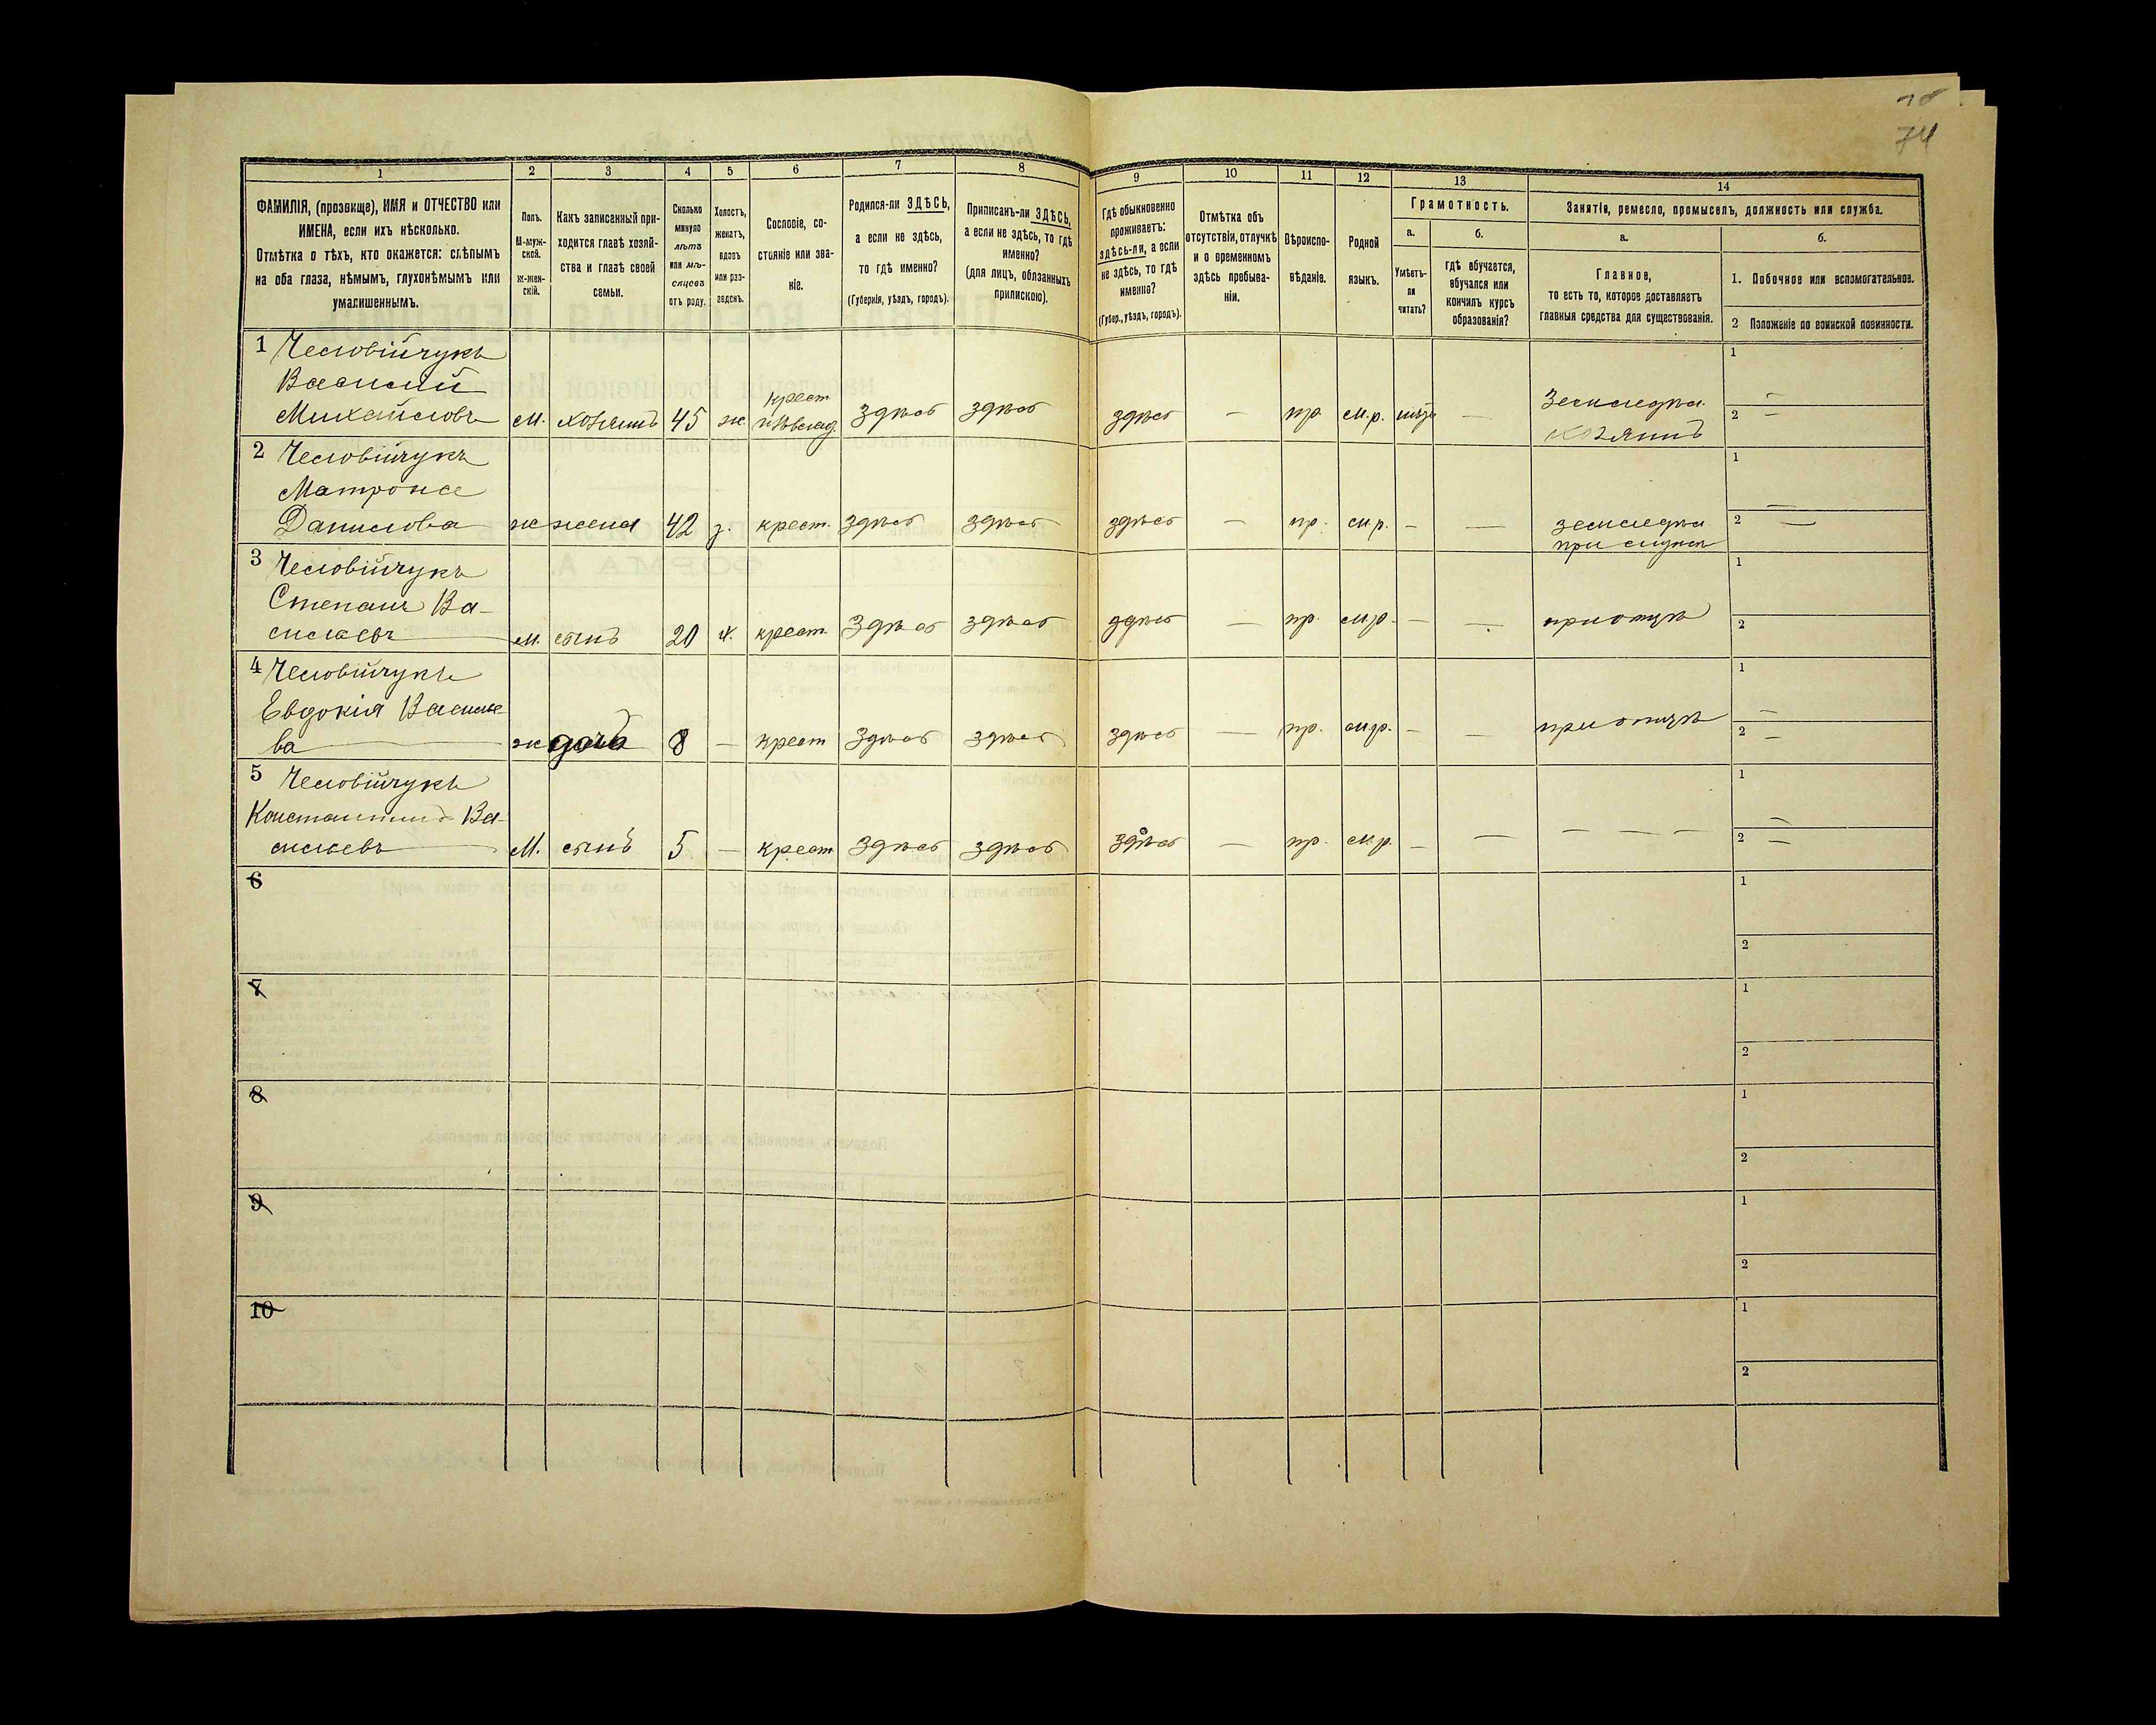 74
1
2
3
4
5
6
7
8
9
10
11
12
13
14
ФАМИЛІЯ, (прозвище), ИМЯ и ОТЧЕСТВО или
ИМЕНА, если ихъ нѣсколько.
Отмѣтка о тѣхъ, кто окажется: слѣпымъ
на оба глаза, нѣмымъ, глухонѣмымъ или
умалишеннымъ.
Полъ.
М-муж-
ской.
ж-жен-
скій.
Какъ записанный при-
ходится главѣ хозяй-
ства и главѣ своей
семьи.
Сколько
минуло
лѣтъ
или мѣ-
сяцевъ
отъ роду.
Холостъ,
женатъ,
вдовъ
или раз-
веденъ.
Сословіе, со-
стояніе или зва-
ніе.
Родился-ли ЗДѢСЬ,
а если не здѣсь,
то гдѣ именно?
(Губернія, уѣздъ, городъ).
Приписанъ-ли ЗДѢСЬ,
а если не здѣсь, то гдѣ
именно?
(для лицъ, обязанныхъ
припискою).
Гдѣ обыкновенно
проживаетъ:
здѣсь-ли, а если
не здѣсь, то гдѣ
именно?
(Губер., уѣздъ, городъ).
Отмѣтка объ
отсутствіи, отлучкѣ
и о временномъ
здѣсь пребыва-
ніи.
Вѣроиспо-
вѣданіе.
Родной
языкъ.
Грамотность.
а.
Умѣетъ-
ли
читать?
б.
гдѣ обучается,
обучался или
кончилъ курсъ
образованія?
Занятія, ремесло, промыселъ, должность или служба.
а.
Главное,
то есть то, которое доставляетъ
главныя средства для существованія.
б.
1. Побочное или вспомогательное.
2 Положеніе по воинской повинности.
1 Человійчукъ
Василий
Михайловъ м. хозяинъ 45 ж. крест. здѣсь здѣсь здѣсь — пр. м.р. — 
хозяинъ
1 —
2 —
2 Человійчукъ
Матрона
Данилова ж жена 42 з. крест. здѣсь здѣсь здѣсь — пр. м.р. — —
при мужѣ
1 —
2 —
3 Человійчукъ
Степанъ Ва-
сильевъ м. сынъ 20 х. крест здѣсь здѣсь здѣсь — пр. м.р. — — при отцѣ
1
2
4 Человійчукъ
Евдокія Василье-
ва ж дочь 8 — крест здѣсь здѣсь здѣсь — пр. м.р. — — при отцѣ
1 —
2 —
5 Человійчукъ
Константинъ Ва-
сильевъ М. сынъ 5 — крест здѣсь здѣсь здѣсь — пр. м.р. — — — — —
1 —
2 —
6
1
2
7
1
2
8
1
2
9
1
2
10
1
2